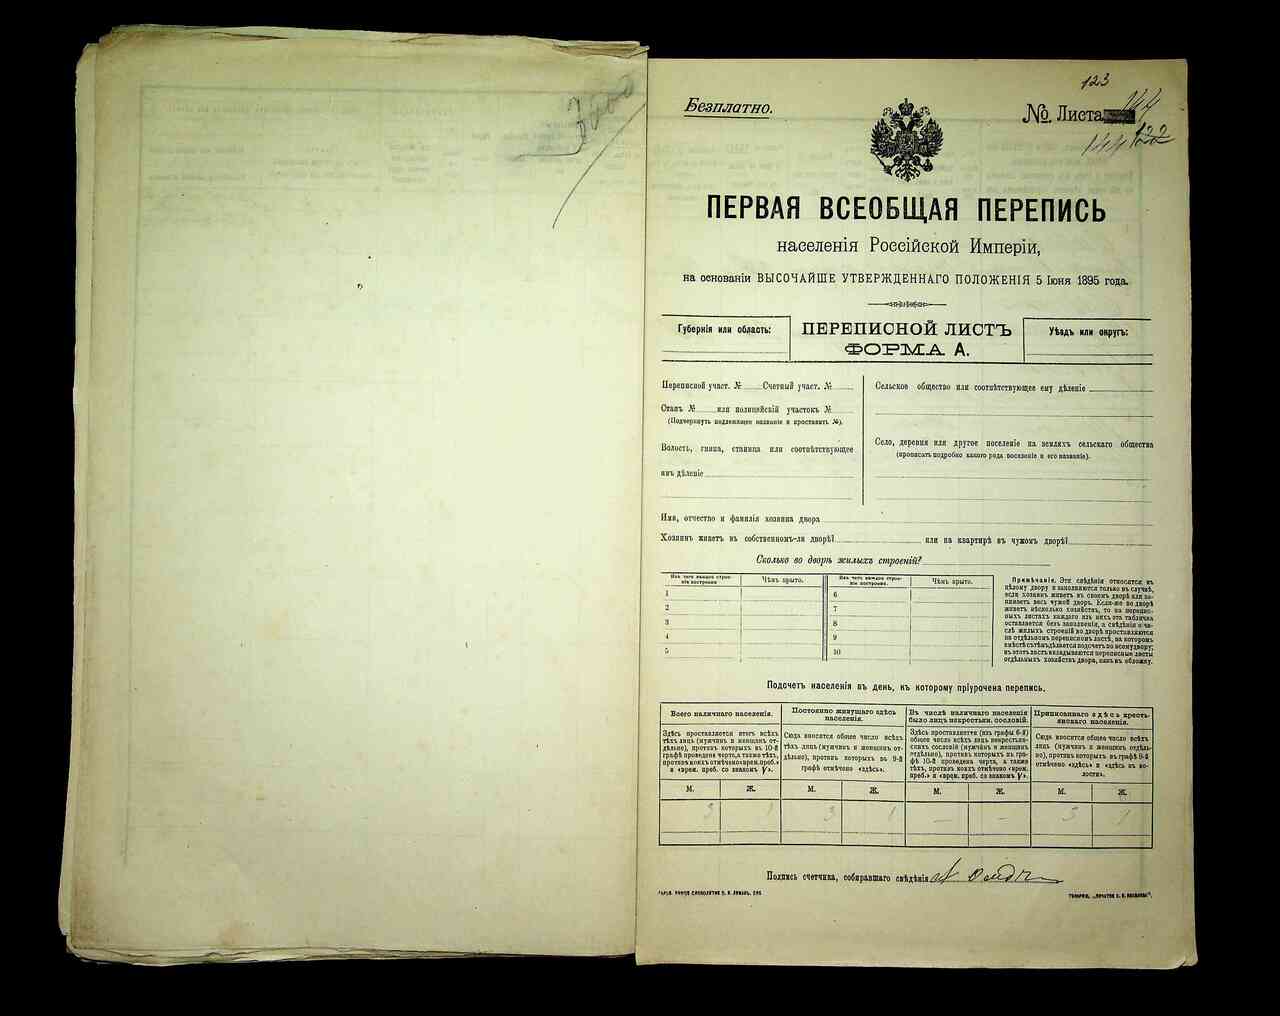 123
Безплатно.
№ Листа 144
144 122
ПЕРВАЯ ВСЕОБЩАЯ ПЕРЕПИСЬ
населенія Россійской Имперіи,
на основаніи ВЫСОЧАЙШЕ УТВЕРЖДЕННАГО ПОЛОЖЕНІЯ 5 Іюня 1895 года.
Губернія или область:
ПЕРЕПИСНОЙ ЛИСТЪ
ФОРМА А.
Уѣздъ или округъ:
Переписной участ. № Счетный участ. №
Станъ № или полицейскій участокъ №
(Подчеркнуть подлежащее названіе и проставить №).
Волость, гмина, станица или соотвѣтствующее
имъ дѣленіе
Сельское общество или соотвѣтствующее ему дѣленіе
Село, деревня или другое поселеніе на земляхъ сельскаго общества
(прописать подробно какого рода поселеніе и его названіе).
Имя, отчество и фамилія хозяина двора
Хозяинъ живетъ въ собственномъ-ли дворѣ? или на квартирѣ въ чужомъ дворѣ?
Сколько во дворѣ жилыхъ строеній?
Изъ чего каждое строе-
ніе построено.
Чѣмъ крыто.
Изъ чего каждое строе-
ніе построено.
Чѣмъ крыто.
1
2
3
4
5
6
7
8
9
10
Примѣчаніе. Эти свѣдѣнія относятся къ
цѣлому двору и заполняются только въ случаѣ,
если хозяинъ живетъ въ своемъ дворѣ или за-
нимаетъ весь чужой дворъ. Если-же во дворѣ
живетъ нѣсколько хозяйствъ, то на перепис-
ныхъ листахъ каждаго изъ нихъ эта табличка
оставляется безъ заполненія, а свѣдѣнія о чи-
слѣ жилыхъ строеній во дворѣ проставляются
на отдѣльномъ переписномъ листѣ, на которомъ
вмѣстѣ съ тѣмъ дѣлается подсчетъ по всему двору;
въ этотъ листъ вкладываются переписные листы
отдѣльныхъ хозяйствъ двора, какъ въ обложку.
Подсчетъ населенія въ день, къ которому пріурочена перепись.
Всего наличнаго населенія.
Здѣсь проставляется итогъ всѣхъ
тѣхъ лицъ (мужчинъ и женщинъ от-
дѣльно), противъ которыхъ въ 10-й
графѣ проведена черта, а также тѣхъ,
противъ коихъ отмѣчено «врем. преб.»
и «врем. преб. со знакомъ V».
Постоянно живущаго здѣсь
населенія.
Сюда вносится общее число всѣхъ
тѣхъ лицъ (мужчинъ и женщинъ от-
дѣльно), противъ которыхъ въ 9-й
графѣ отмѣчено «здѣсь».
Въ числѣ наличнаго населенія
было лицъ некрестьян. сословій.
Здѣсь проставляется (изъ графы 6-й)
общее число всѣхъ лицъ некрестьян-
скихъ сословій (мужчинъ и женщинъ
отдѣльно), противъ которыхъ въ гра-
фѣ 10-й проведена черта, а также
тѣхъ, противъ коихъ отмѣчено «врем.
преб.» и «врем. преб. со знакомъ V».
Приписаннаго здѣсь кресть-
янскаго населенія.
Сюда вносится общее число всѣхъ
лицъ (мужчинъ и женщинъ отдѣль-
но), противъ которыхъ въ графѣ 8-й
отмѣчено «здѣсь» и «здѣсь въ во-
лости».
М. Ж. М. Ж. М. Ж. М. Ж.
3 1 3 1 — — 3 1
Подпись счетчика, собиравшаго свѣдѣнія